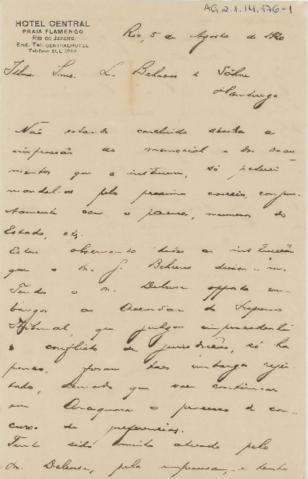 AG.2.1.14.176-1
HOTEL CENTRAL
PRAIA FLAMENGO
Rio de Janeiro
End. Tel. CENTRALHOTEL
Rio, 5 de Agosto de 1920
Illms. Snrs. L. Behrens & Söhne
Hamburgo
Não estando concluida ainda a
impressão do memorial e dos docu-
mentos que o instruem, só poderei
mandal-os pelo proximo correio, conjun-
tamente com o parecer,
Estado, etc.
Estou observando as instrucções
que o Sr. J. Behrens deixou-me.
Tendo o Dr. opposto em-
bargos ao Accordam do Supremo
Tribunal, que julgou improcedente
o conflicto de jurisdicção, só ha
pouco foram taes embargos rejei-
tados, de modo que vae continuar
em Araraquara o processo de con-
curso de preferencias.
Tenho sido muito atacado pelo
Dr. pela imprensa, e tenho